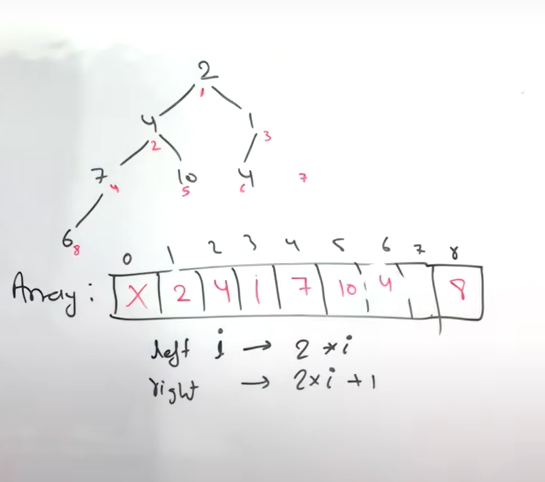 2
1
4 1
2 3
7 10 4 7
4 5 6
6
8
0 1 2 3 4 5 6 7 8
Array: X 2 4 1 7 10 4 8
left i → 2 * i
right → 2 x i + 1